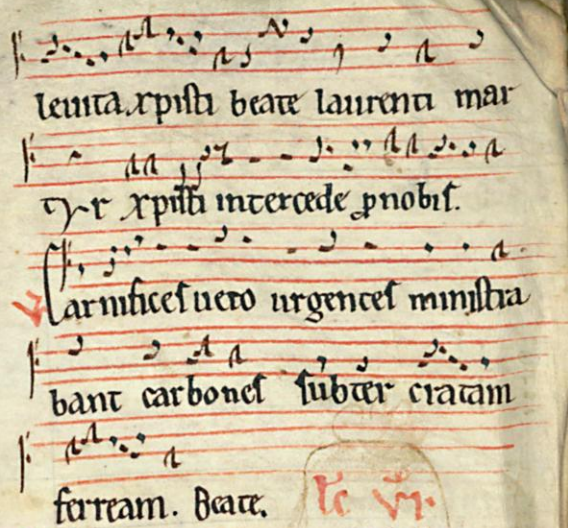 levita xpisti beate laurenti mar
tyr xpisti intercede ꝓ nobis.
V Carnifices vero urgentes ministra
bant carbones subter cratam
ferream. Beate.